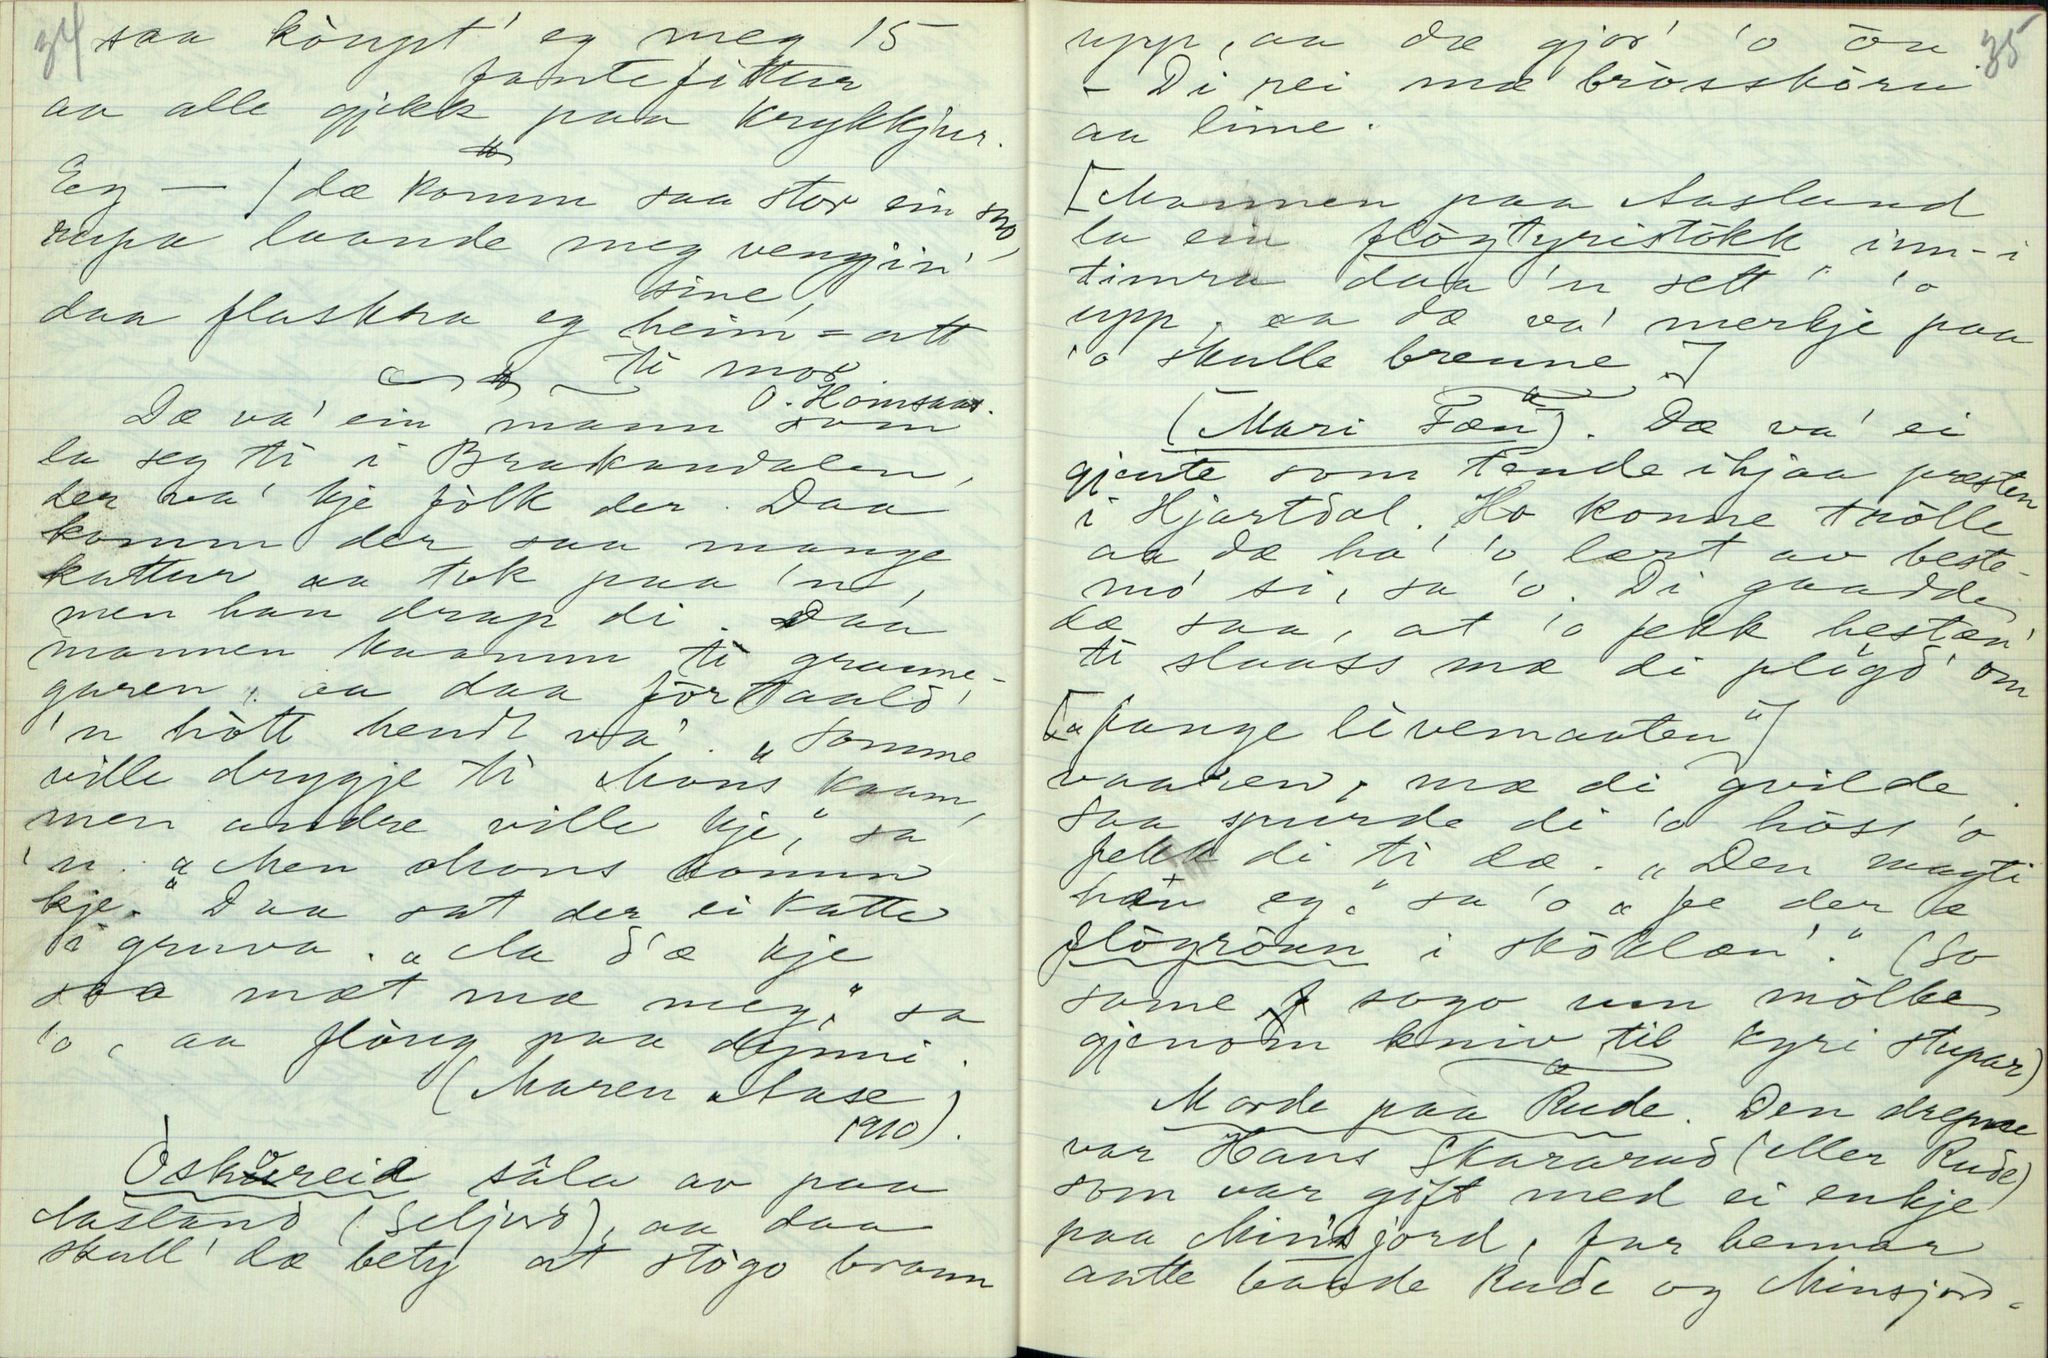 34
saa köupt' eg meg 15
fantefittur
aa alle gjekk paa krykkjur.
Eg — / dæ komm saa stor ein sno,
rupa laande meg vengjin'
sine,
daa flaskra eg heim-att
ti mor.
O. Homsaas.
Dæ va' ein mann som
la seg ti i Brakandalen,
der va' kje fólk der. Daa
komm der saa mange
kattur aa tok paa 'n,
men han drap di. Daa
mannen kaamm ti granne-
garen, aa daa fortaald'
'n hótt hendt va'. „Somme
ville drygje ti Mons kaam,
men andre ville kje," sa
'n. „Men Mons komm
kje." Daa sat der ei katte
i gruva. „Aa d'æ kje
saa mæt mæ meg," sa
'o, aa flaug paa dynni.
(Maren Aase
1910).
Oskoreid sala av paa
Aasland (Seljord), aa daa
skull' dæ bety at stógo brann
35
upp, aa dæ gjor' 'o òu.
– Di rei mæ brósskóru
aa lime.
[Mannen paa Aasland
la ein flógtyristókk inn-i
timra daa 'n sett' 'o
upp, aa dæ va' merkje paa
'o skulle brenne.]
(Mari Fæn). Dæ va' ei
gjente som tende ihjaa presten
i Hjartdal. Ho konne trölle
aa dæ ha' 'o lært av beste-
mó si, sa 'o. Di gaadde
dæ saa, at 'o fekk hestæn'
ti slaass mæ di plógd' om
[„fange livemaaten"]
vaaren, mæ di qvilde.
Saa spurde di 'o hóss 'o
fekk di ti dæ. „Den magti
hæv eg," sa 'o „fe der æ
flógróun i skóklæn'." (So
same sogo um mólke
gjenom kniv til kyri stupar)
Morde paa Rude. Den drepne
var Hans Skararud (eller Rude)
som var gift med ei enkje
paa Minsjord, far hennar
aatte baade Rude og Minsjord.